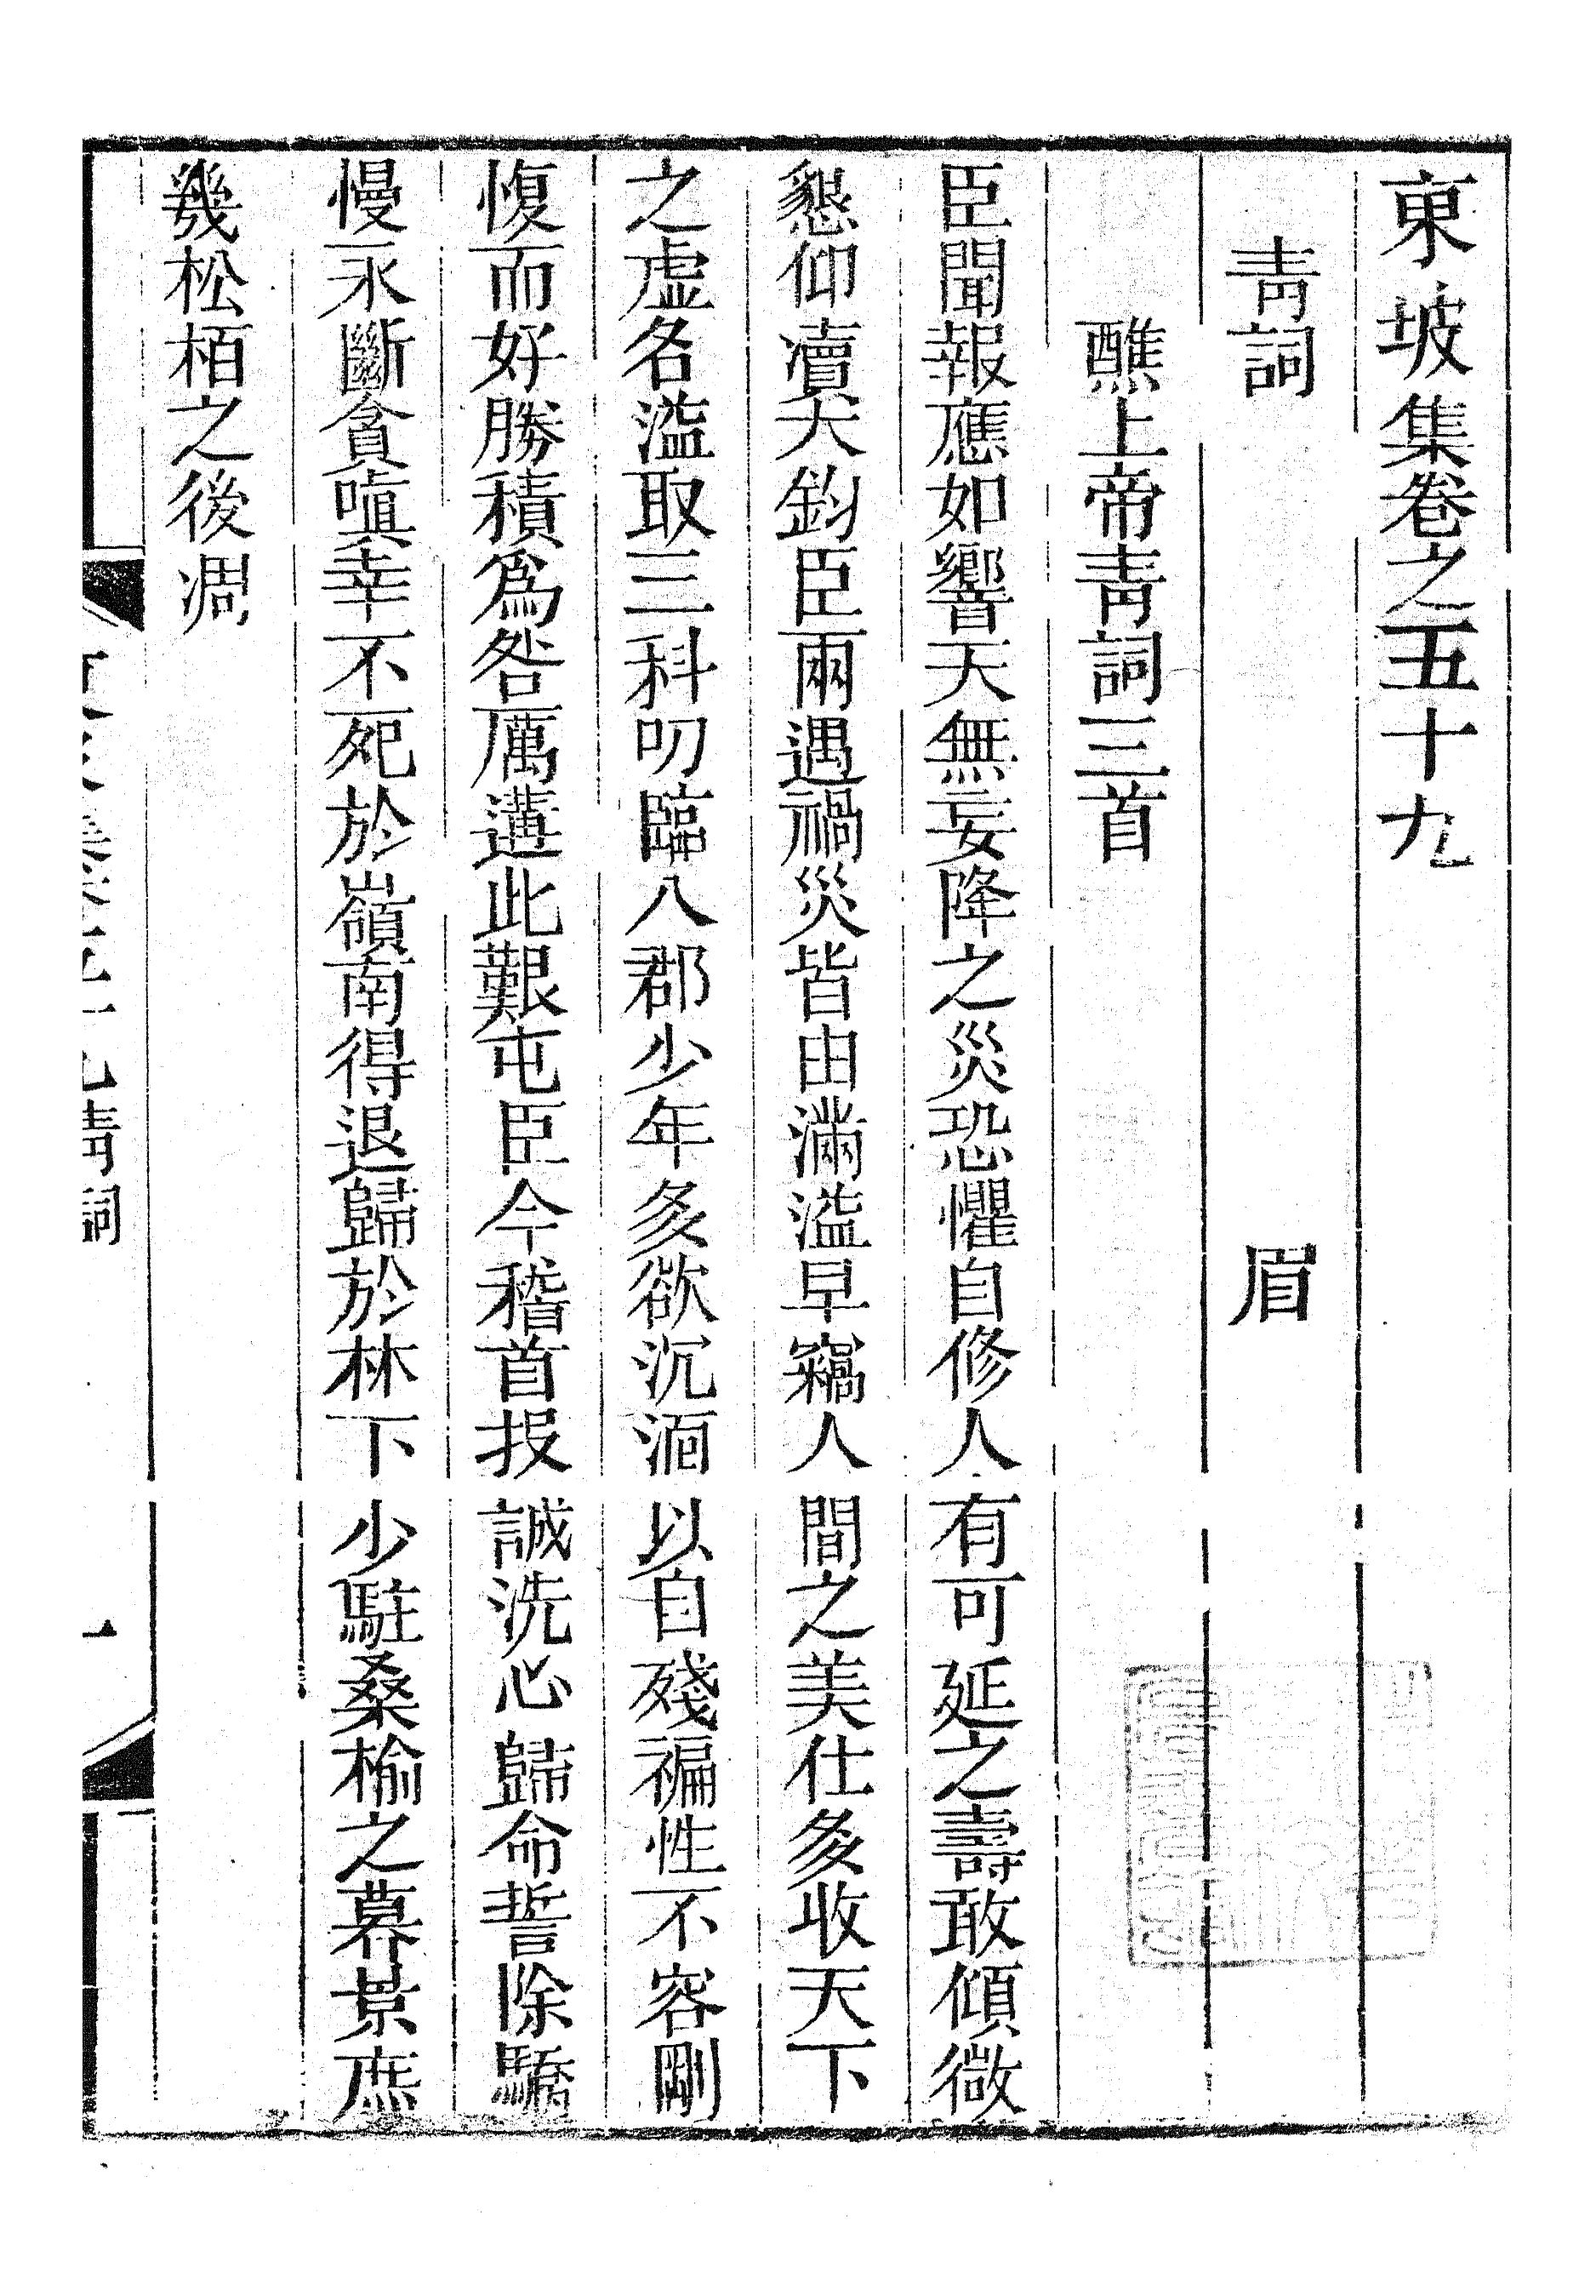 東坡集卷之五十九
青詞　眉
醮上帝青詞三首
臣聞報應如響天無妄降之災恐懼自修人有可延之壽敢傾微
懇仰凟大鈞臣兩遇禍災皆由滿溢早竊人間之美仕多收天下
之虛名溢取三科叨臨八郡少年多欲沉湎以自殘褊性不容剛
愎而好勝積爲咎厲遘此艱屯臣今稽首投誠洗心歸命誓除驕
慢永斷貪嗔幸不死於嶺南得退歸於林下少駐桑榆之暮景庶
幾松栢之後凋